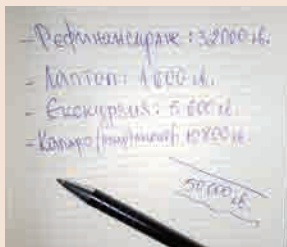 - Рефинансиране: 32000 лв.
- Лаптоп: 1 600 лв.
- Екскурзия: 5 600 лв.
- 10 800 лв.
50 000 лв.